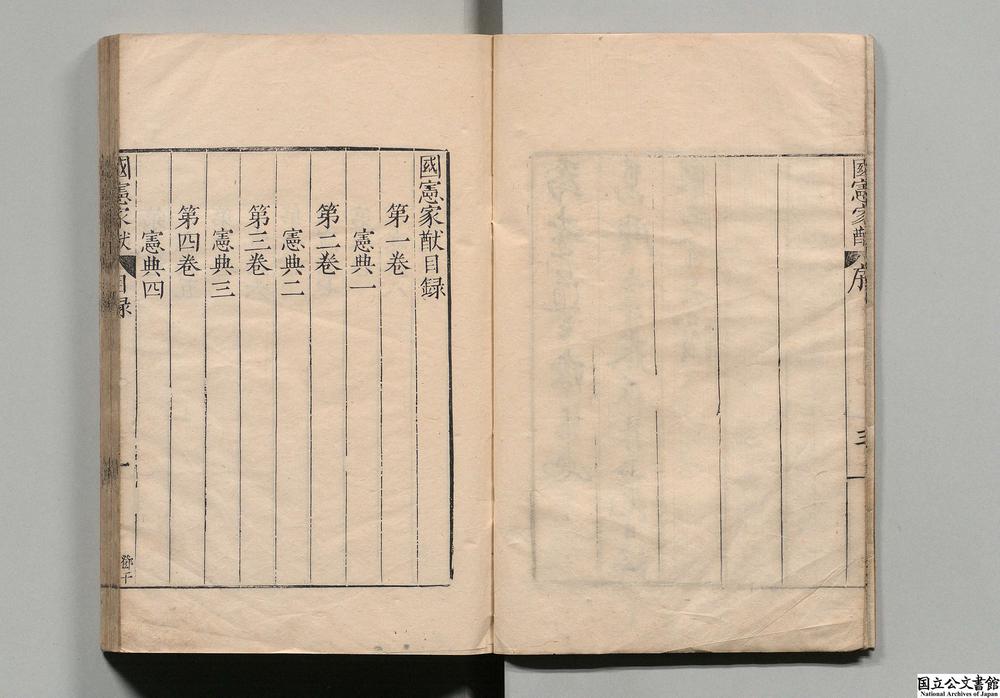 國憲家猷
序
三
國憲家猷目録
第一卷
憲典一
第二卷
憲典二
第三卷
憲典三
第四卷
憲典四
國憲家猷
目録
一
国立公文書館
National Archives of Japan